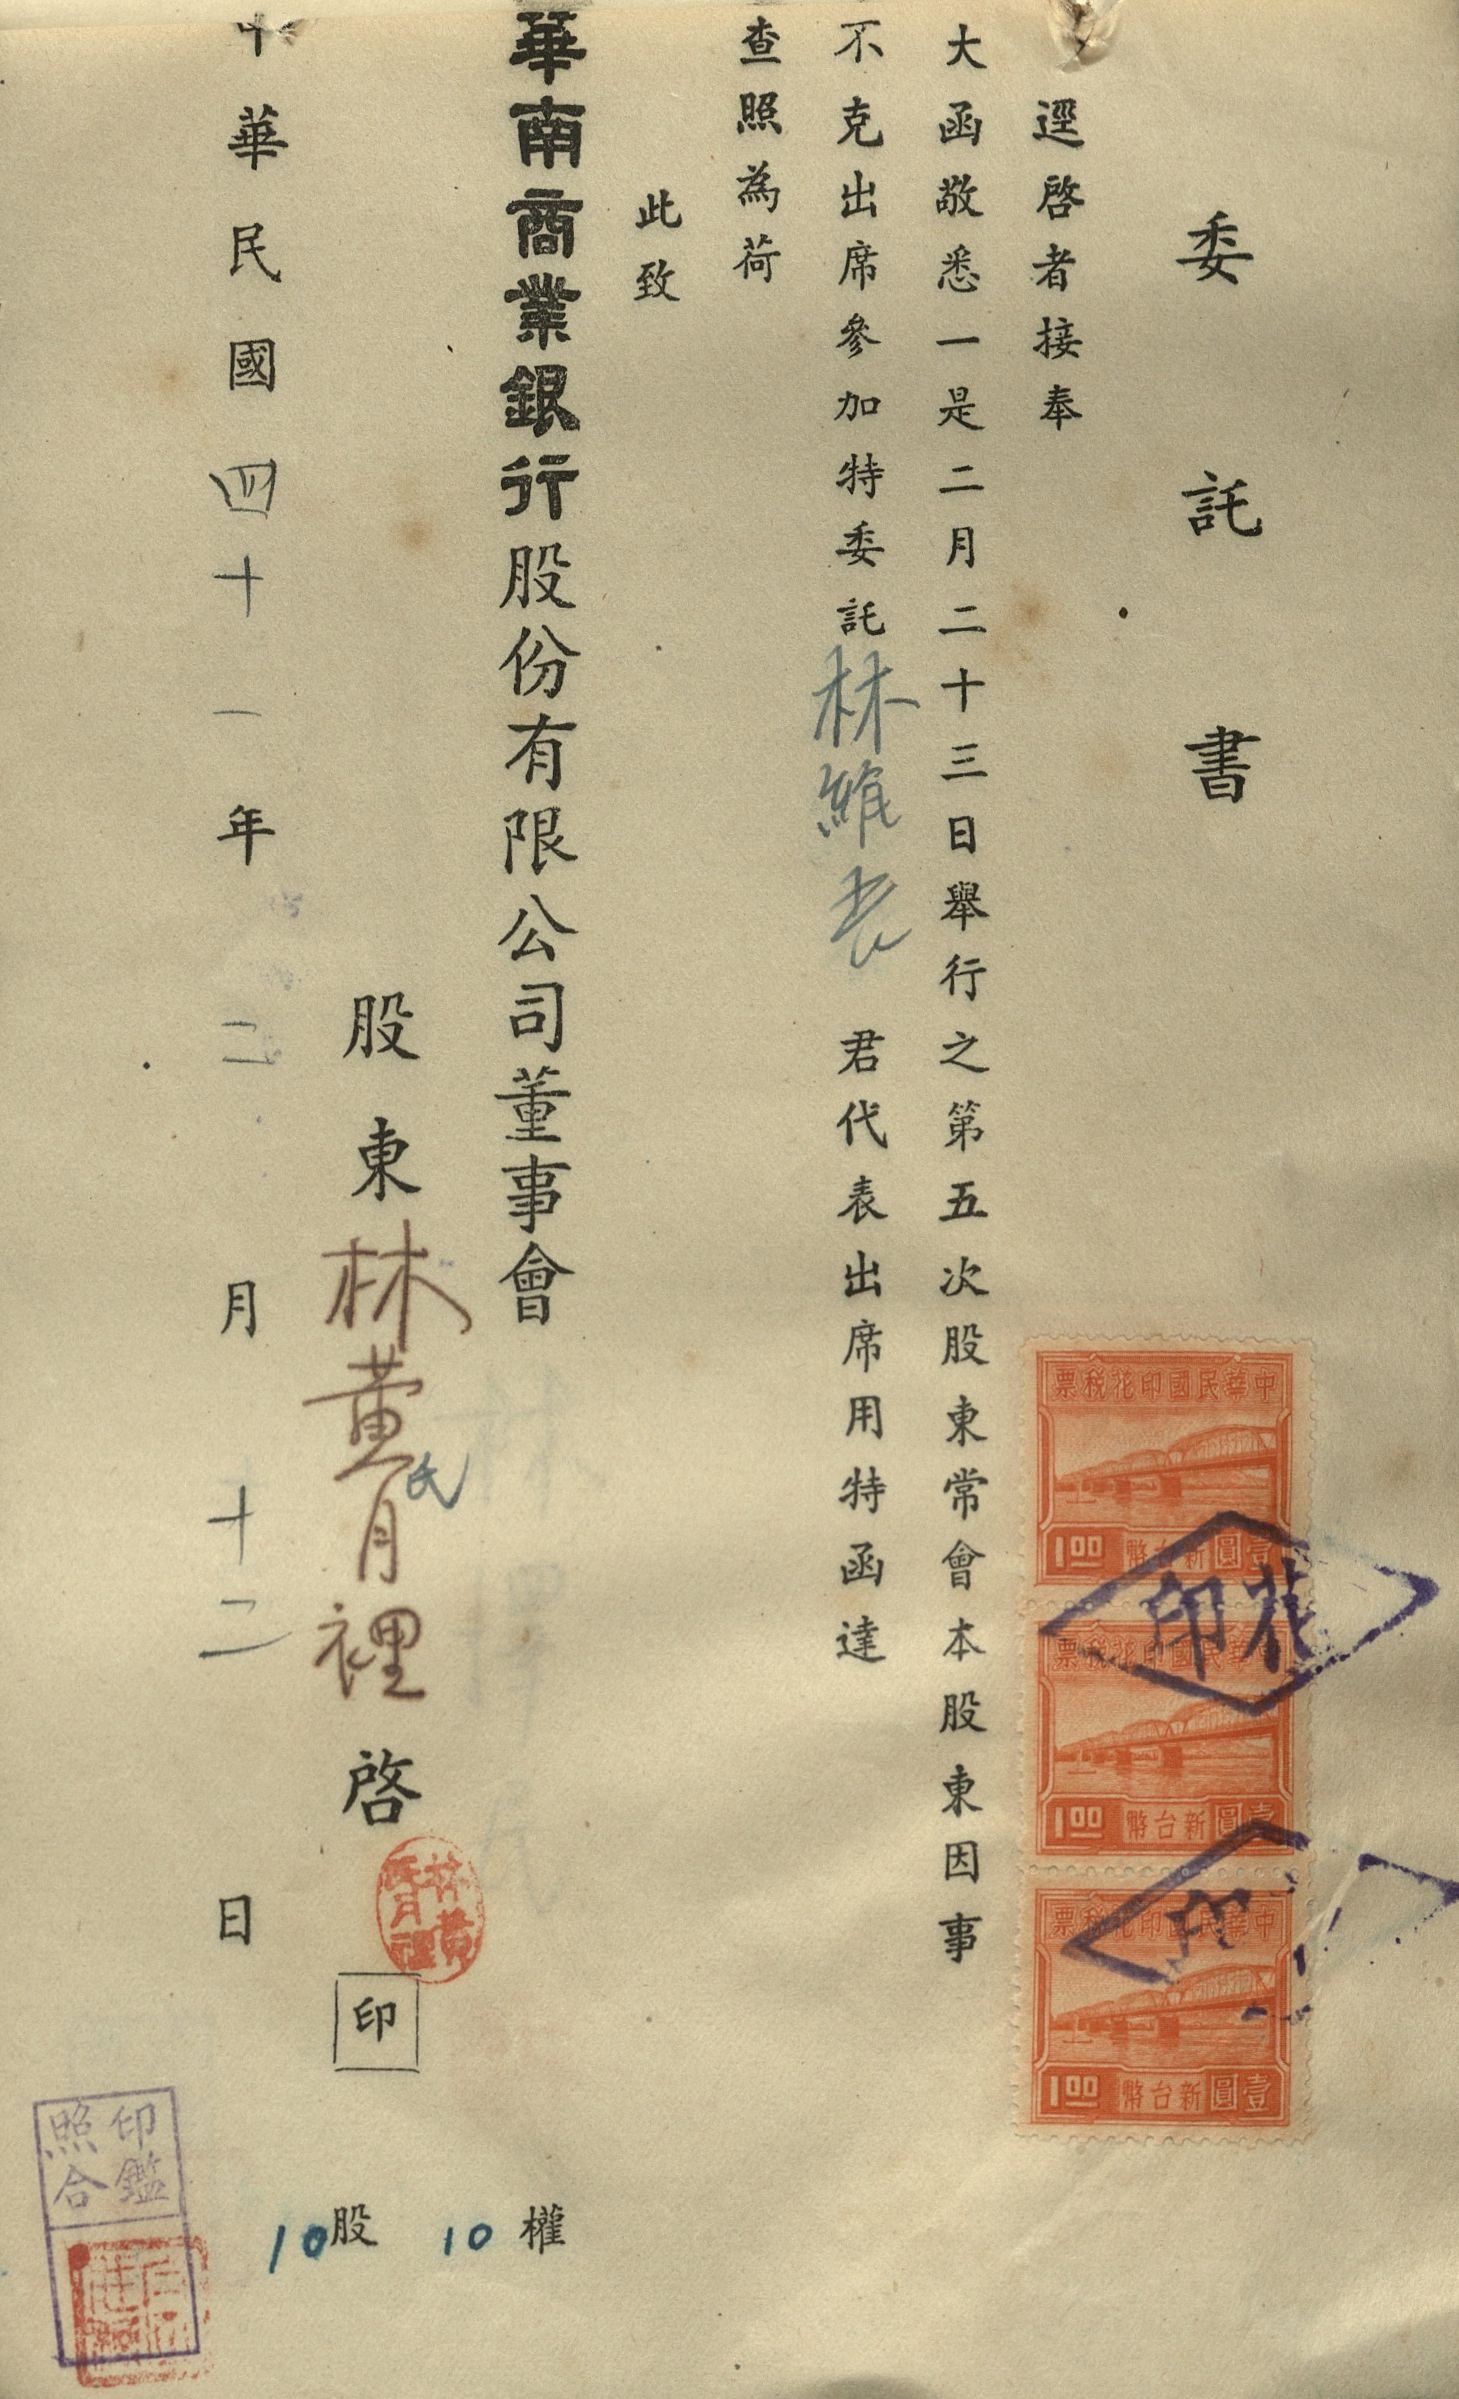 委託書
逕啓者接奉
大函敬悉一是二月二十三日舉行之第五次股東常會本股東因事
不克出席參加特委託林維 君代表出席用特函達
查照為荷
此致
華南商業銀行股份有限公司董事會
股東林黃氏月裡啓
印
中華民國四十一年二月十二日
10權
10股
中華民國印花稅票
新台幣壹圓
1.00
中華民國印花稅票
新台幣壹圓
1.00
中華民國印花稅票
新台幣壹圓
1.00
印花
印
林黃氏月裡
印鑑
照合